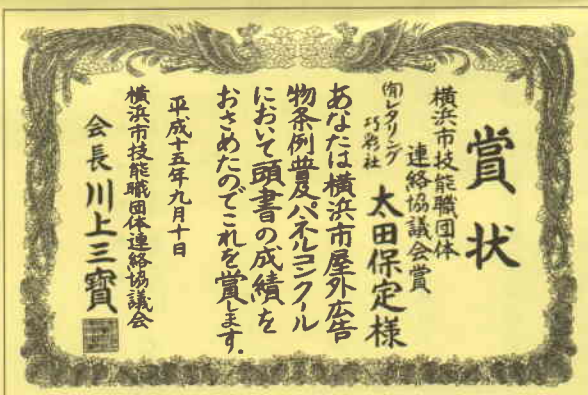 賞状
横浜市技能職団体
連絡協議会賞
(有)レタリング
巧彩社
太田保定様
あなたは横浜市屋外広告
物条例普及パネルコンクール
において頭書の成績を
おさめたのでこれを賞します.
平成十五年九月十日
横浜市技能職団体連絡協議会
会長川上三寳